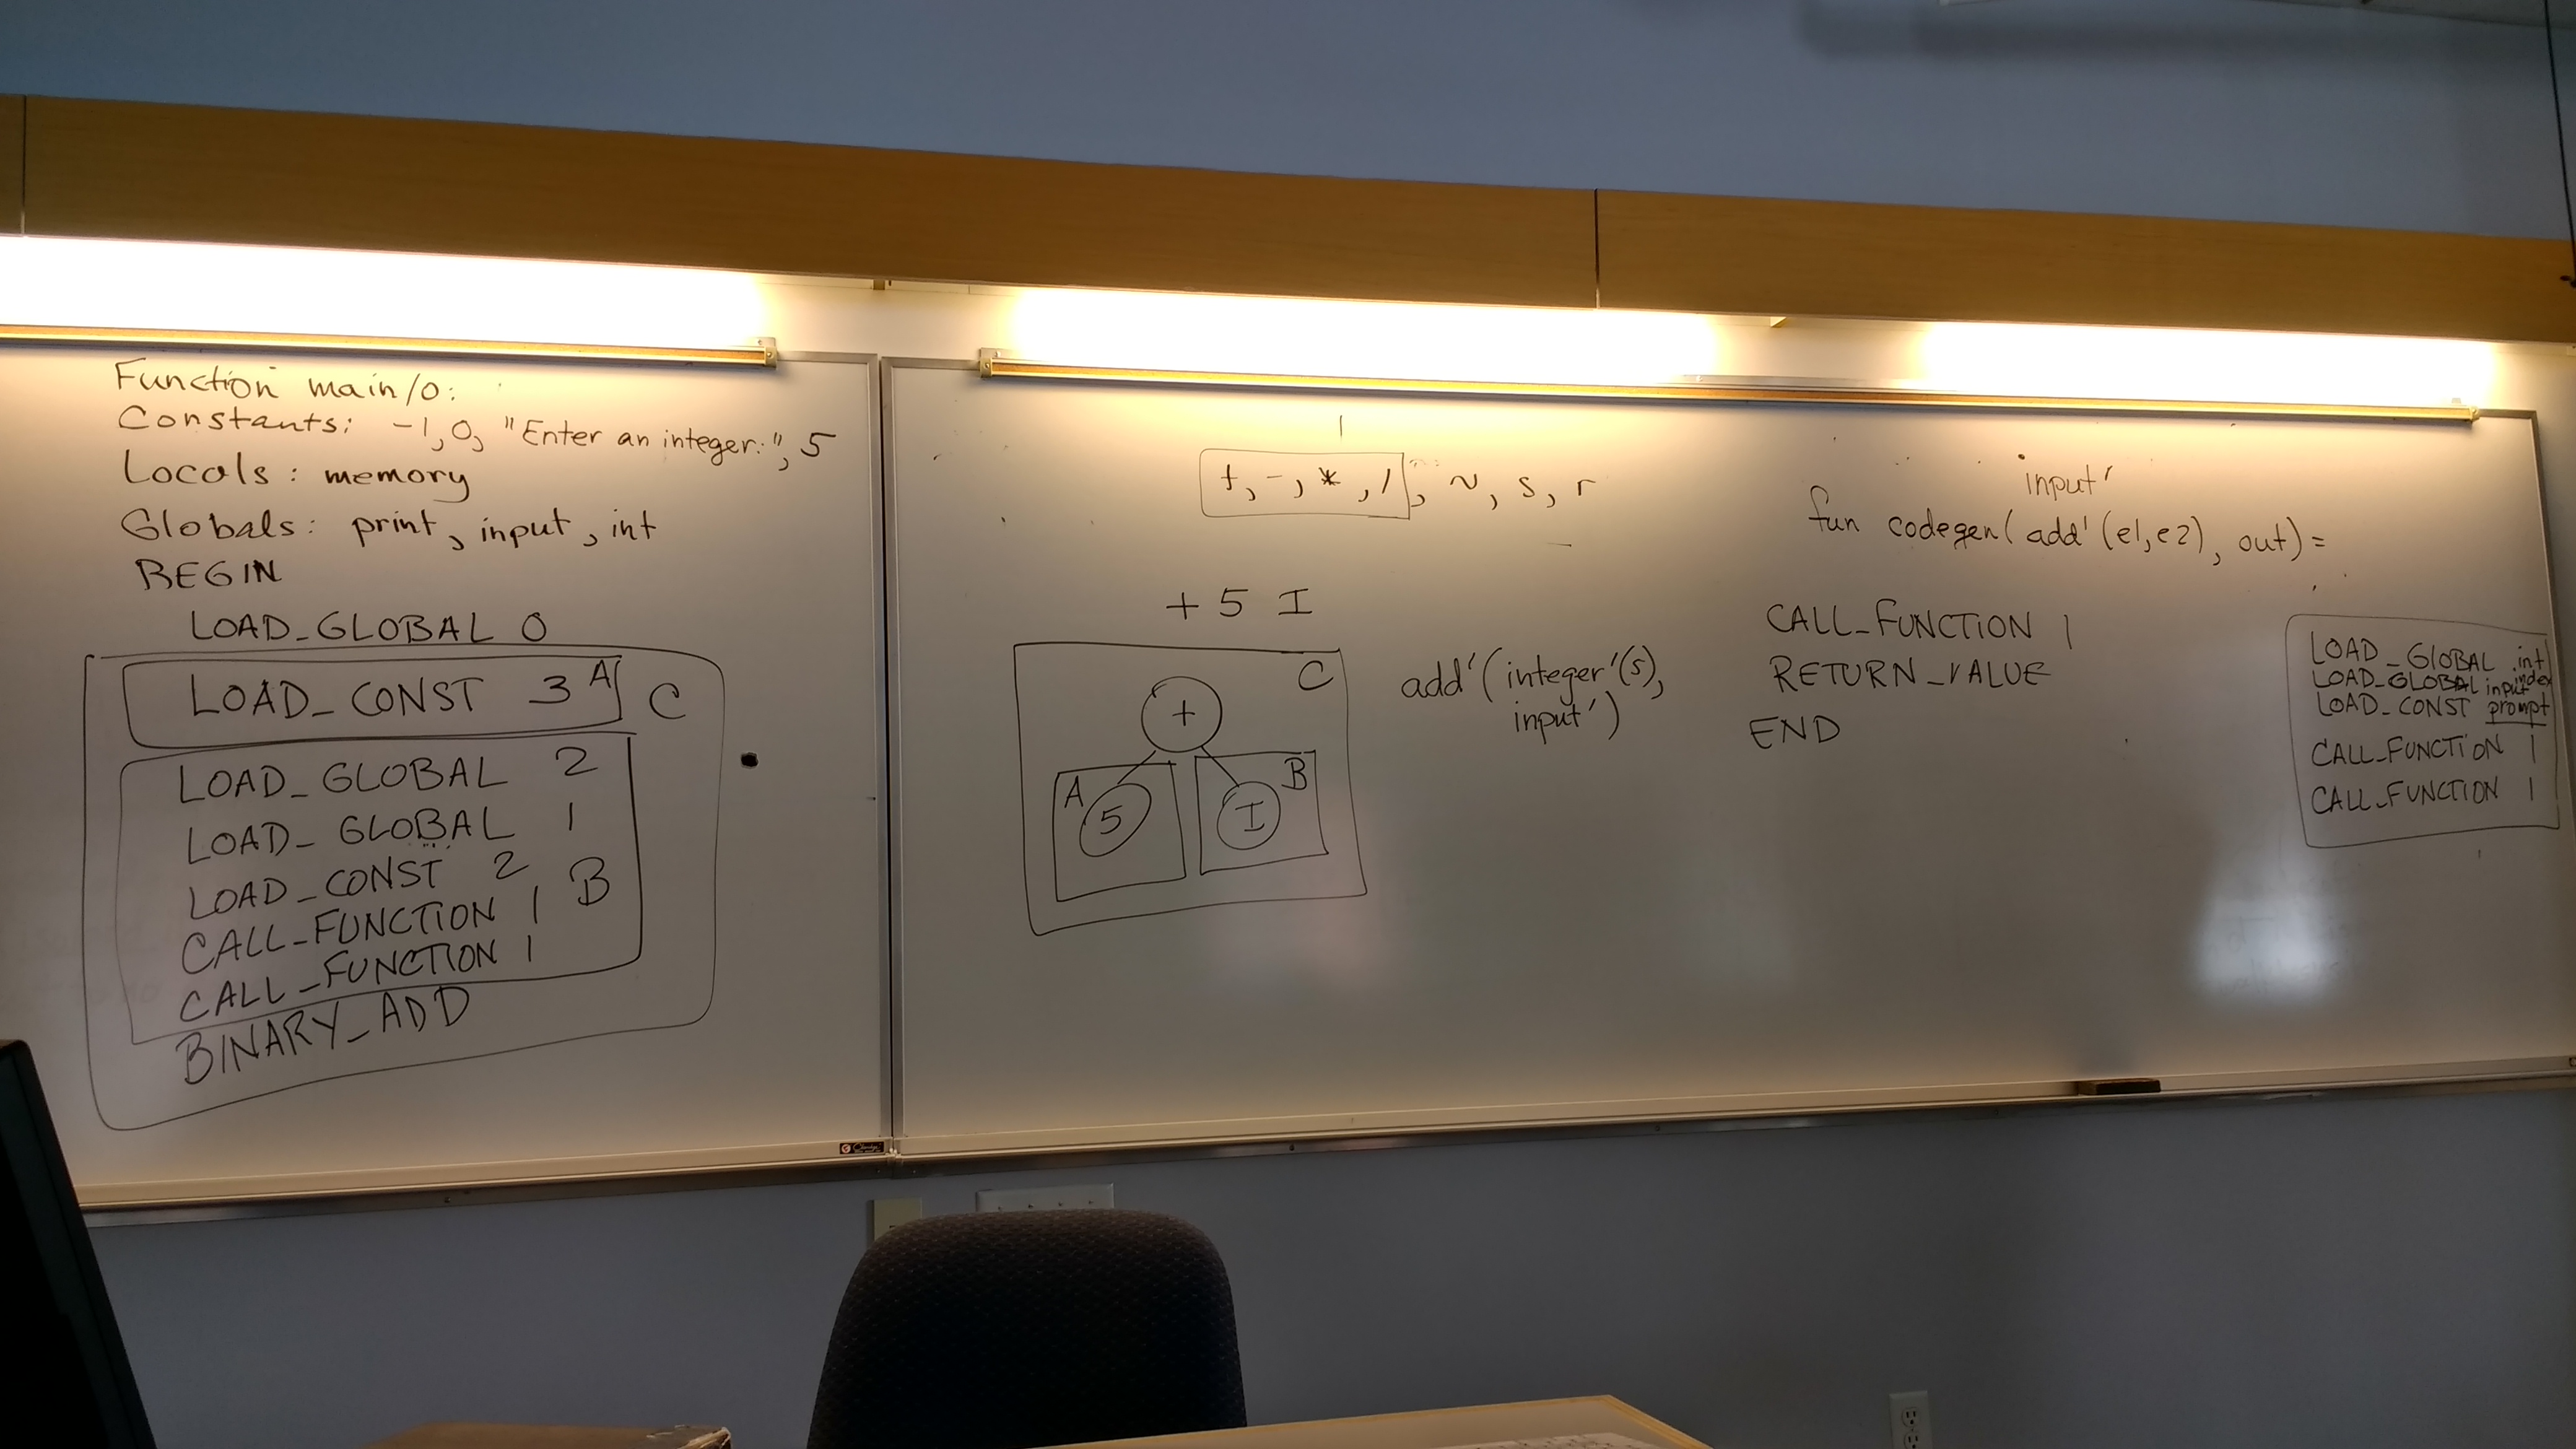 Function main/0:
Constants: -1, 0, "Enter an integer:", 5
Locals: memory
Globals: print, input, int
BEGIN
LOAD_GLOBAL 0
LOAD_CONST 3 A
C
LOAD_GLOBAL 2
LOAD_GLOBAL 1
LOAD_CONST 2
B
CALL_FUNCTION 1
CALL_FUNCTION 1
BINARY_ADD
+, -, *, /, ~, s, r
+ 5 I
C
+
A
5
B
I
add'(integer'(5),
input')
input'
fun codegen(add'(e1,e2), out) =
CALL_FUNCTION 1
RETURN_VALUE
END
LOAD_GLOBAL int
LOAD_GLOBAL input index
LOAD_CONST prompt
CALL_FUNCTION 1
CALL_FUNCTION 1